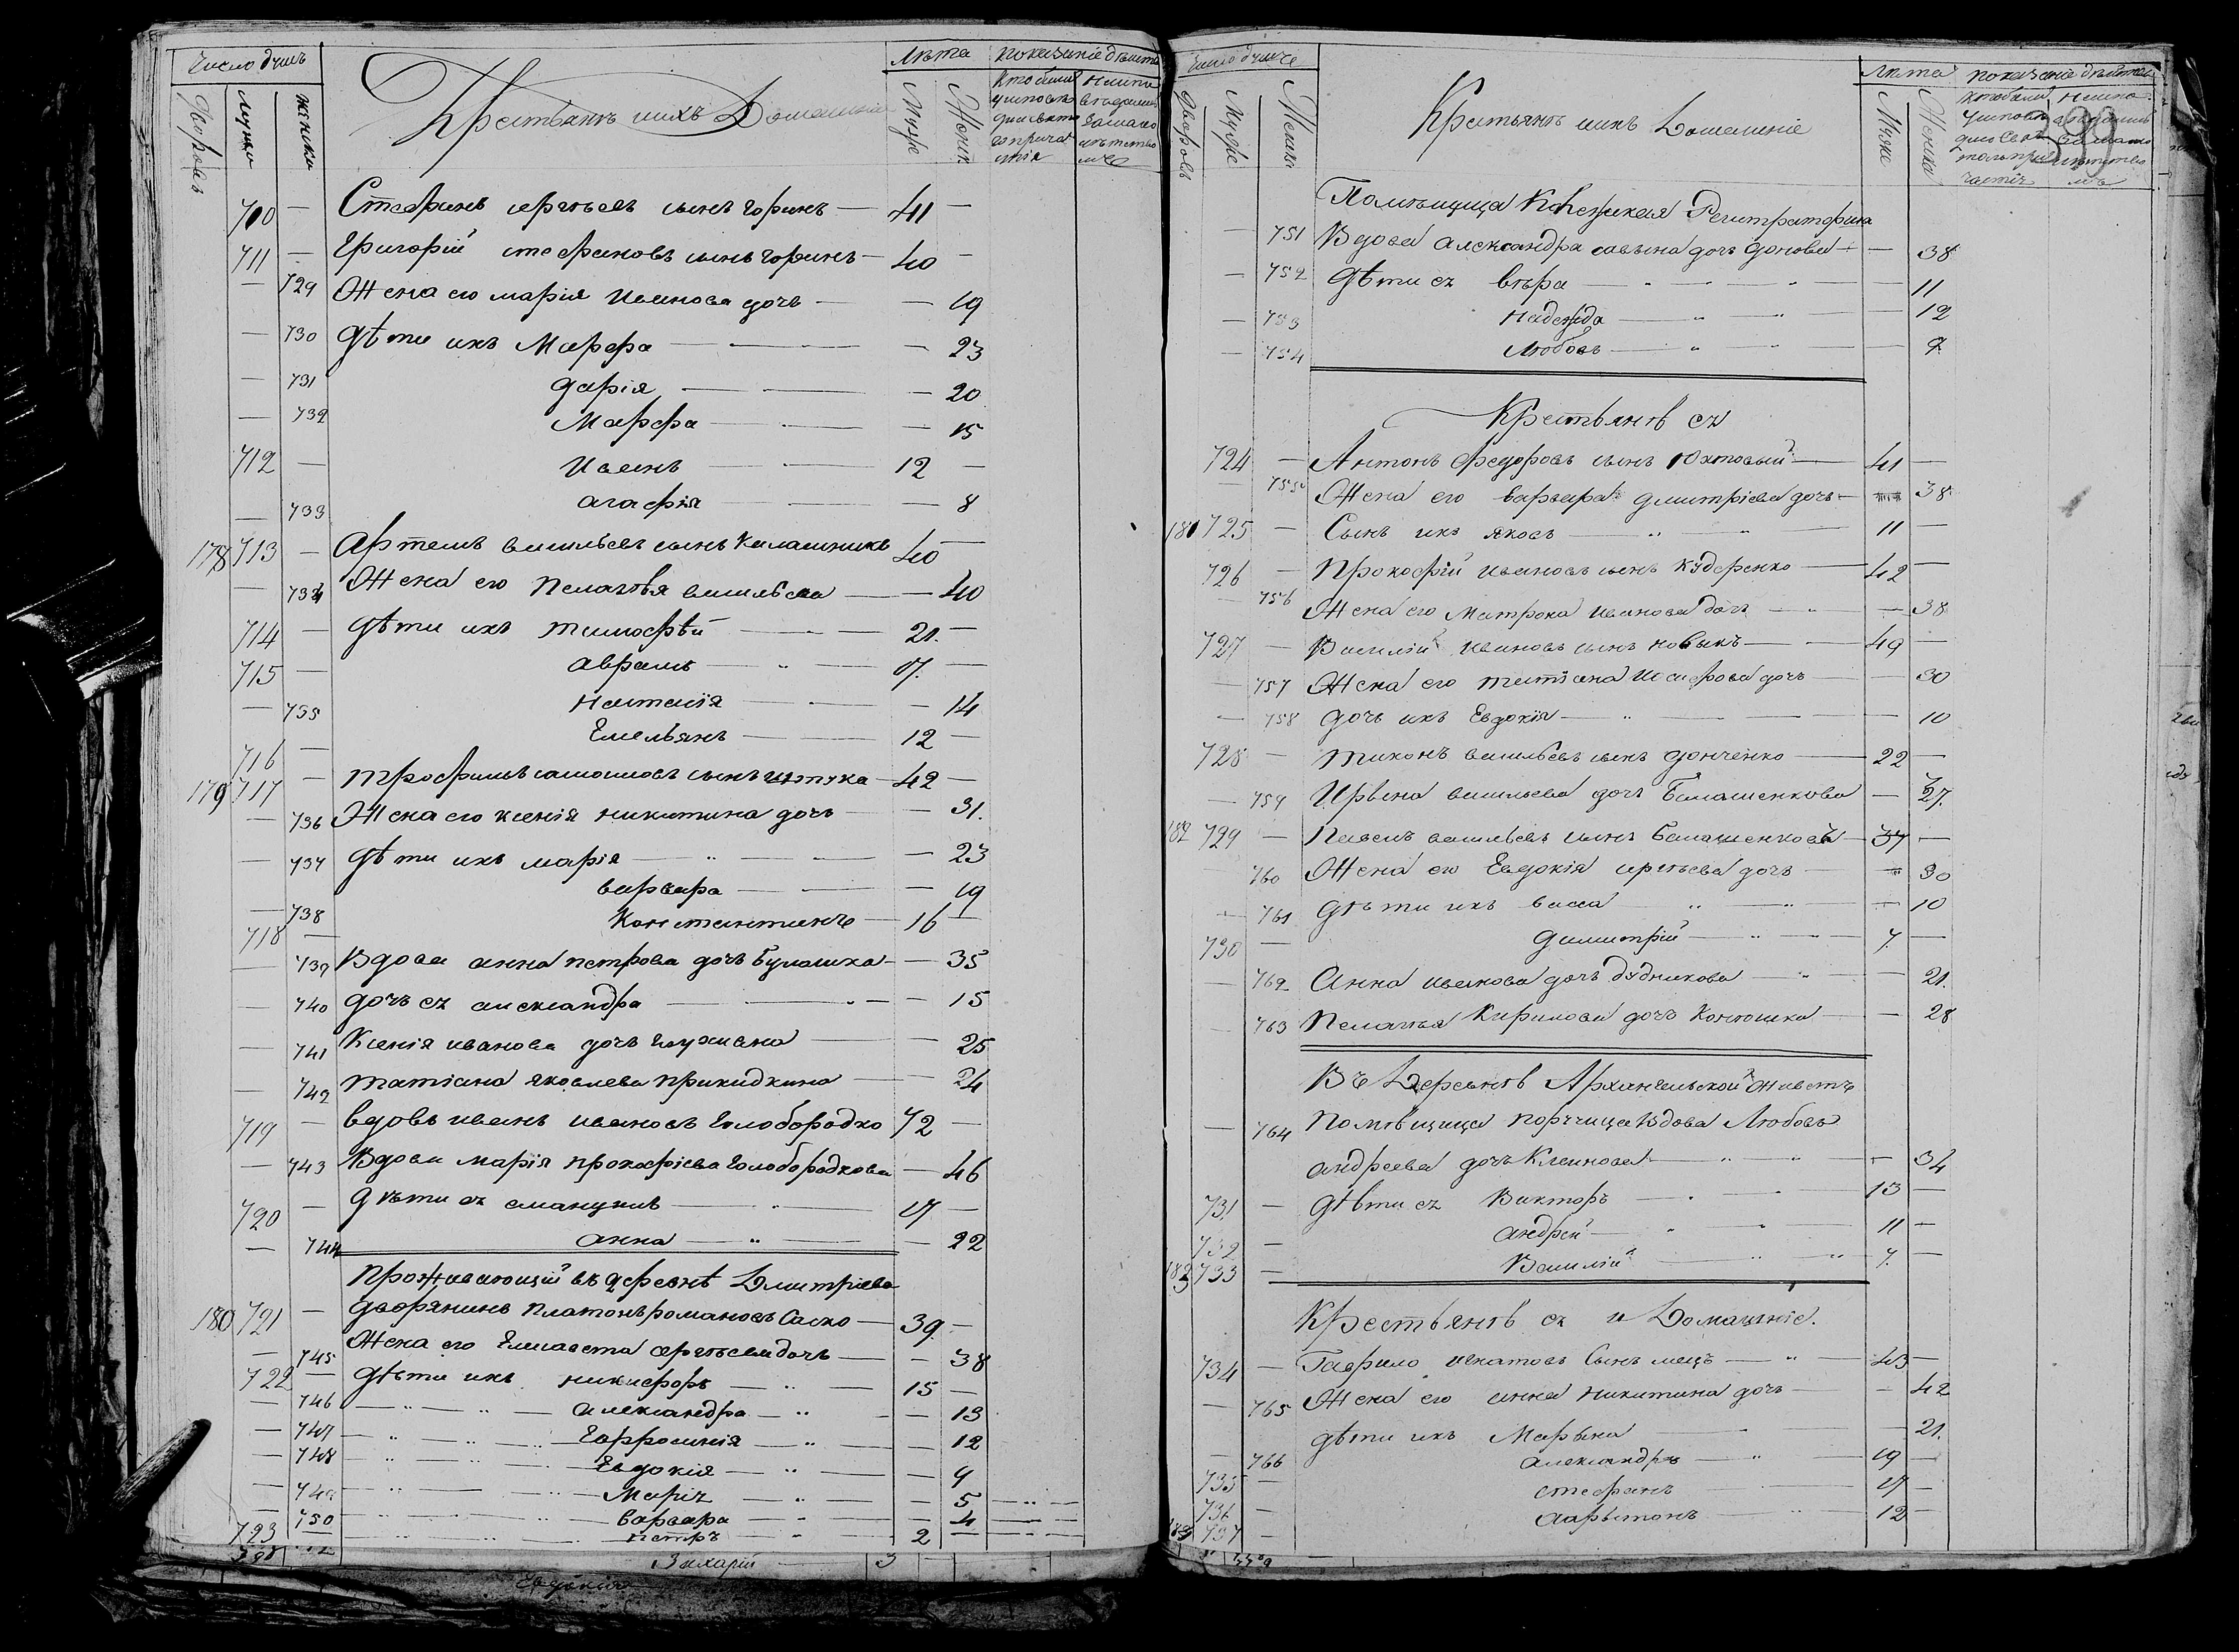 Число душъ
Дворовъ
Мужска
Женска
Крестьянъ ихъ Домашніе
Лѣта
Муже
Женск
показаніе дѣйств
Кто были
710 — Стефанъ сергѣевъ сынъ горинъ — 41 —
711 — Григорій стефановъ сынъ горинъ — 40 —
— 729 Жена его марія иванова дочь — — 19
— 730 Дѣти ихъ Марфа — — 23
— 731 дарія — — 20
— 732 Марфа — — 15
712 — Иванъ — 12 —
— 733 агафія — — 8
178 713 — Артемъ васильевъ сынъ Калашникъ 40 —
— 734 Жена его Пелагѣя васильева — — 40
714 — Дѣти ихъ тимофѣй — 21. —
715 — аврамъ — 17. —
— 735 наталія — — 14
716 — Емельянъ — 12 —
179 717 — трофимъ сынъ — 42 —
— 736 Жена его ксенія никитина дочь — — 31.
— 737 Дѣти ихъ марія — — 23
— 738 варвара — — 19
718 — Константинъ — 16 —
— 739 Вдова анна петрова дочь — — 35
— 740 дочь ея александра — — 15
— 741 Ксенія иванова дочь — — 25
— 742 татіана яковлева прикидкина — — 24
719 — вдовъ иванъ ивановъ голобородко 72 —
— 743 Вдова марія прокофіева голобородкова — 46
720 — Дѣти ея емануилъ — 17 —
— 744 анна — — 22
проживающій въ деревнѣ Дмитріева
180 721 — дворянинъ платонъ романовъ Саско — 39. —
— 745 Жена его Елисавета сергѣева дочь — — 38
722 — Дѣти ихъ никифоръ — 15 —
— 746 александра — — 13
— 747 Евфросинія — — 12
— 748 Евдокія — — 9
— 749 Марія — — 5
— 750 варвара — — 4
723 — петръ — 2 —
Захарій — 3
Евдокія
Число душъ
Дворовъ
Муже
Женска
Крестьянъ ихъ Домашніе
Лѣта
Муже
Женска
показаніе дѣйств
390
Помѣщица Колежская Регитраторша
— 751 Вдова александра савѣина дочь донова — — 38
— 752 Дѣти ея вѣра — — 11
— 753 надежда — — 12
— 754 Любовь — — 9
Крестьянѣ ея
724 — Антонъ федоровъ сынъ Юхтовый — 41 —
— 755 Жена его варвара дмитріева дочь — 38
181 725 — Сынъ ихъ яковъ — 11 —
726 — Прокофій ивановъ сынъ Кудеренко — 42 —
— 756 Жена его Матрона иванова дочь — — 38
727 — Василій ивановъ сынъ новыкъ — 49 —
— 757 Жена его татіана иосифова дочь — — 30
— 758 дочь ихъ Евдокія — — 10
728 — тихонъ васильевъ сынъ донченко — 22 —
— 759 Ирѣина васильева дочь Балашенкова — 27.
182 729 — Павелъ васильевъ сынъ Балашенковъ — 37 —
— 760 Жена его Евдокія сергѣева дочь — 30
— 761 Дѣти ихъ васса — — 10
730 — димитрій — 7. —
— 762 Анна иванова дочь дудникова — — 21.
— 763 Пелагѣя Кирилова дочь Контошка — — 28
Въ Деревнѣ Архангельской живетъ
— 764 Помѣщица поручица Вдова Любовь
андреева дочь Клемнова — — 34
731. — Дѣти ея Викторъ — 13 —
732 — андрей — 11 —
183 733 — Василій — 7. —
Крестьянѣ ея и Домашніе.
734 — Гаврило игнатовъ Сынъ — 43 —
— 765 Жена его анна никитина дочь — — 42
дѣти ихъ Марьина — 21.
— 766 александръ — 19 —
735 — стефанъ — 17 —
736 — 12 —
737 —